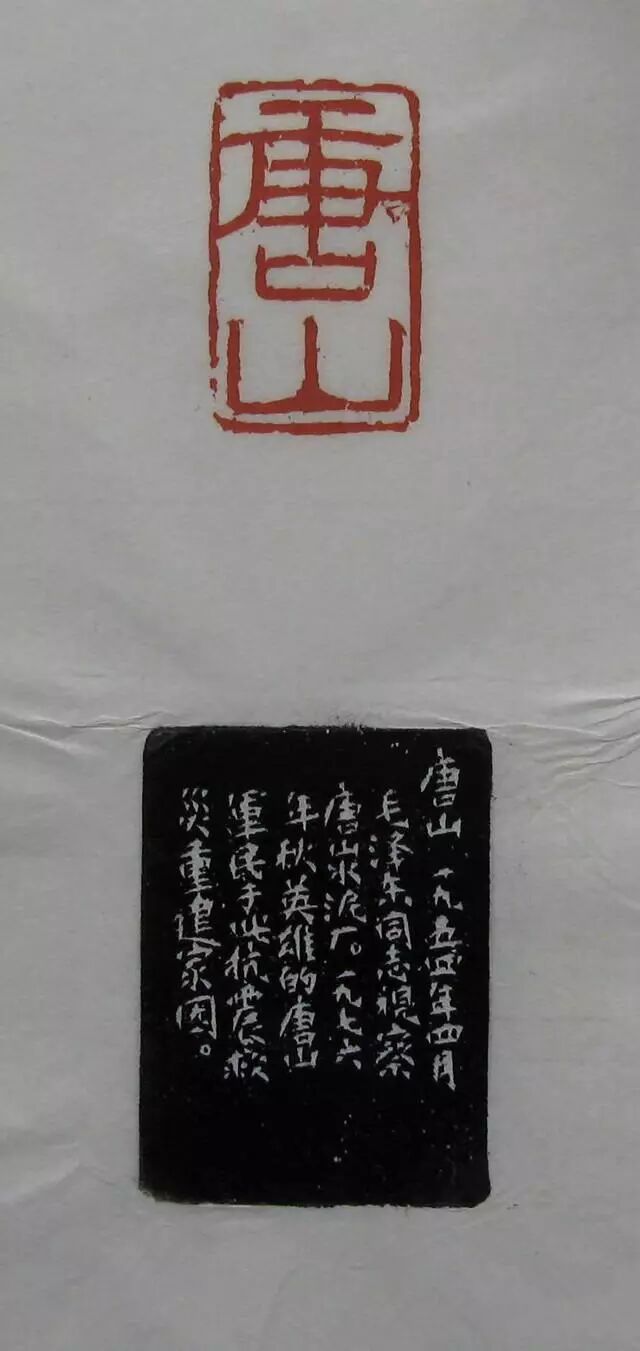 唐山
唐山 一九五四年四月
毛泽东同志視察
唐山水泥厂。一九七六
年秋英雄的唐山
軍民于此抗震救
災重建家园。